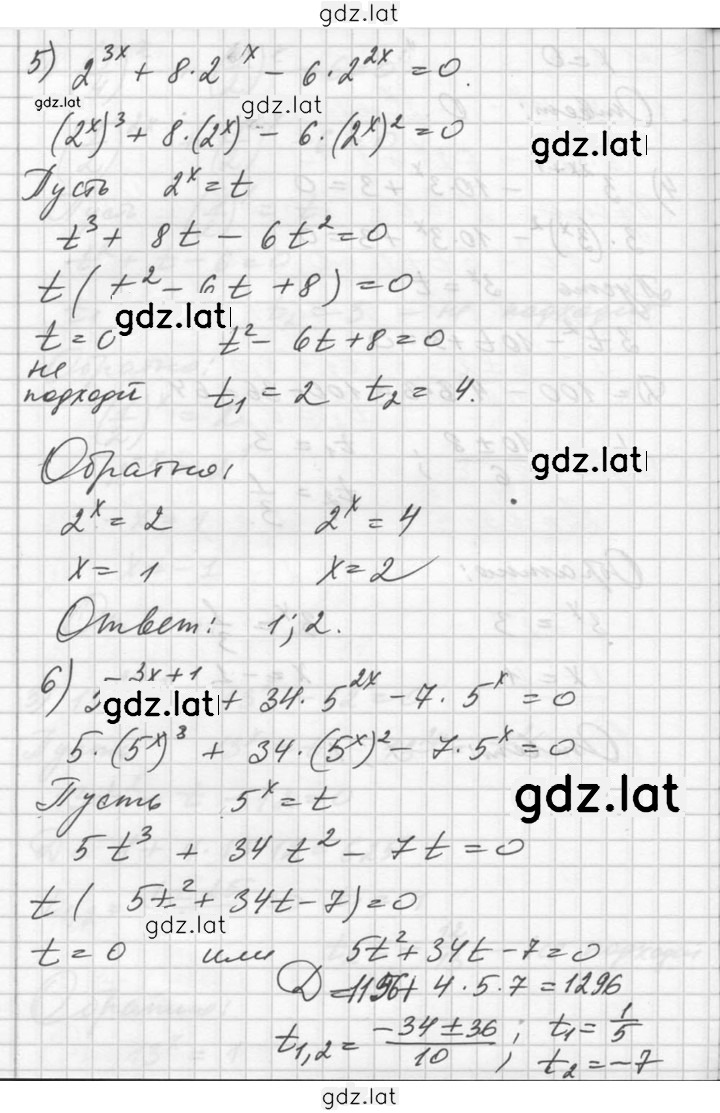 gdz.lat
5) 2^{3x} + 8·2^x - 6·2^{2x} = 0.
gdz.lat gdz.lat
(2^x)^3 + 8·(2^x) - 6·(2^x)^2 = 0
gdz.lat
Пусть 2^x = t
t^3 + 8t - 6t^2 = 0
t(t^2 - 6t + 8) = 0
gdz.lat
t = 0 t^2 - 6t + 8 = 0
не
подходит t_1 = 2 t_2 = 4.
Обратно:
gdz.lat
2^x = 2 2^x = 4
x = 1 x = 2
Ответ: 1; 2.
6) 3x+1 + 34·5^{2x} - 7·5^x = 0
gdz.lat
5·(5^x)^3 + 34·(5^x)^2 - 7·5^x = 0
Пусть 5^x = t
gdz.lat
5t^3 + 34t^2 - 7t = 0
t(5t^2 + 34t - 7) = 0
gdz.lat
t = 0 или 5t^2 + 34t - 7 = 0
D = 1156 + 4·5·7 = 1296
t_{1,2} = \frac{-34 ± 36}{10}; t_1 = \frac{1}{5}
, t_2 = -7
gdz.lat